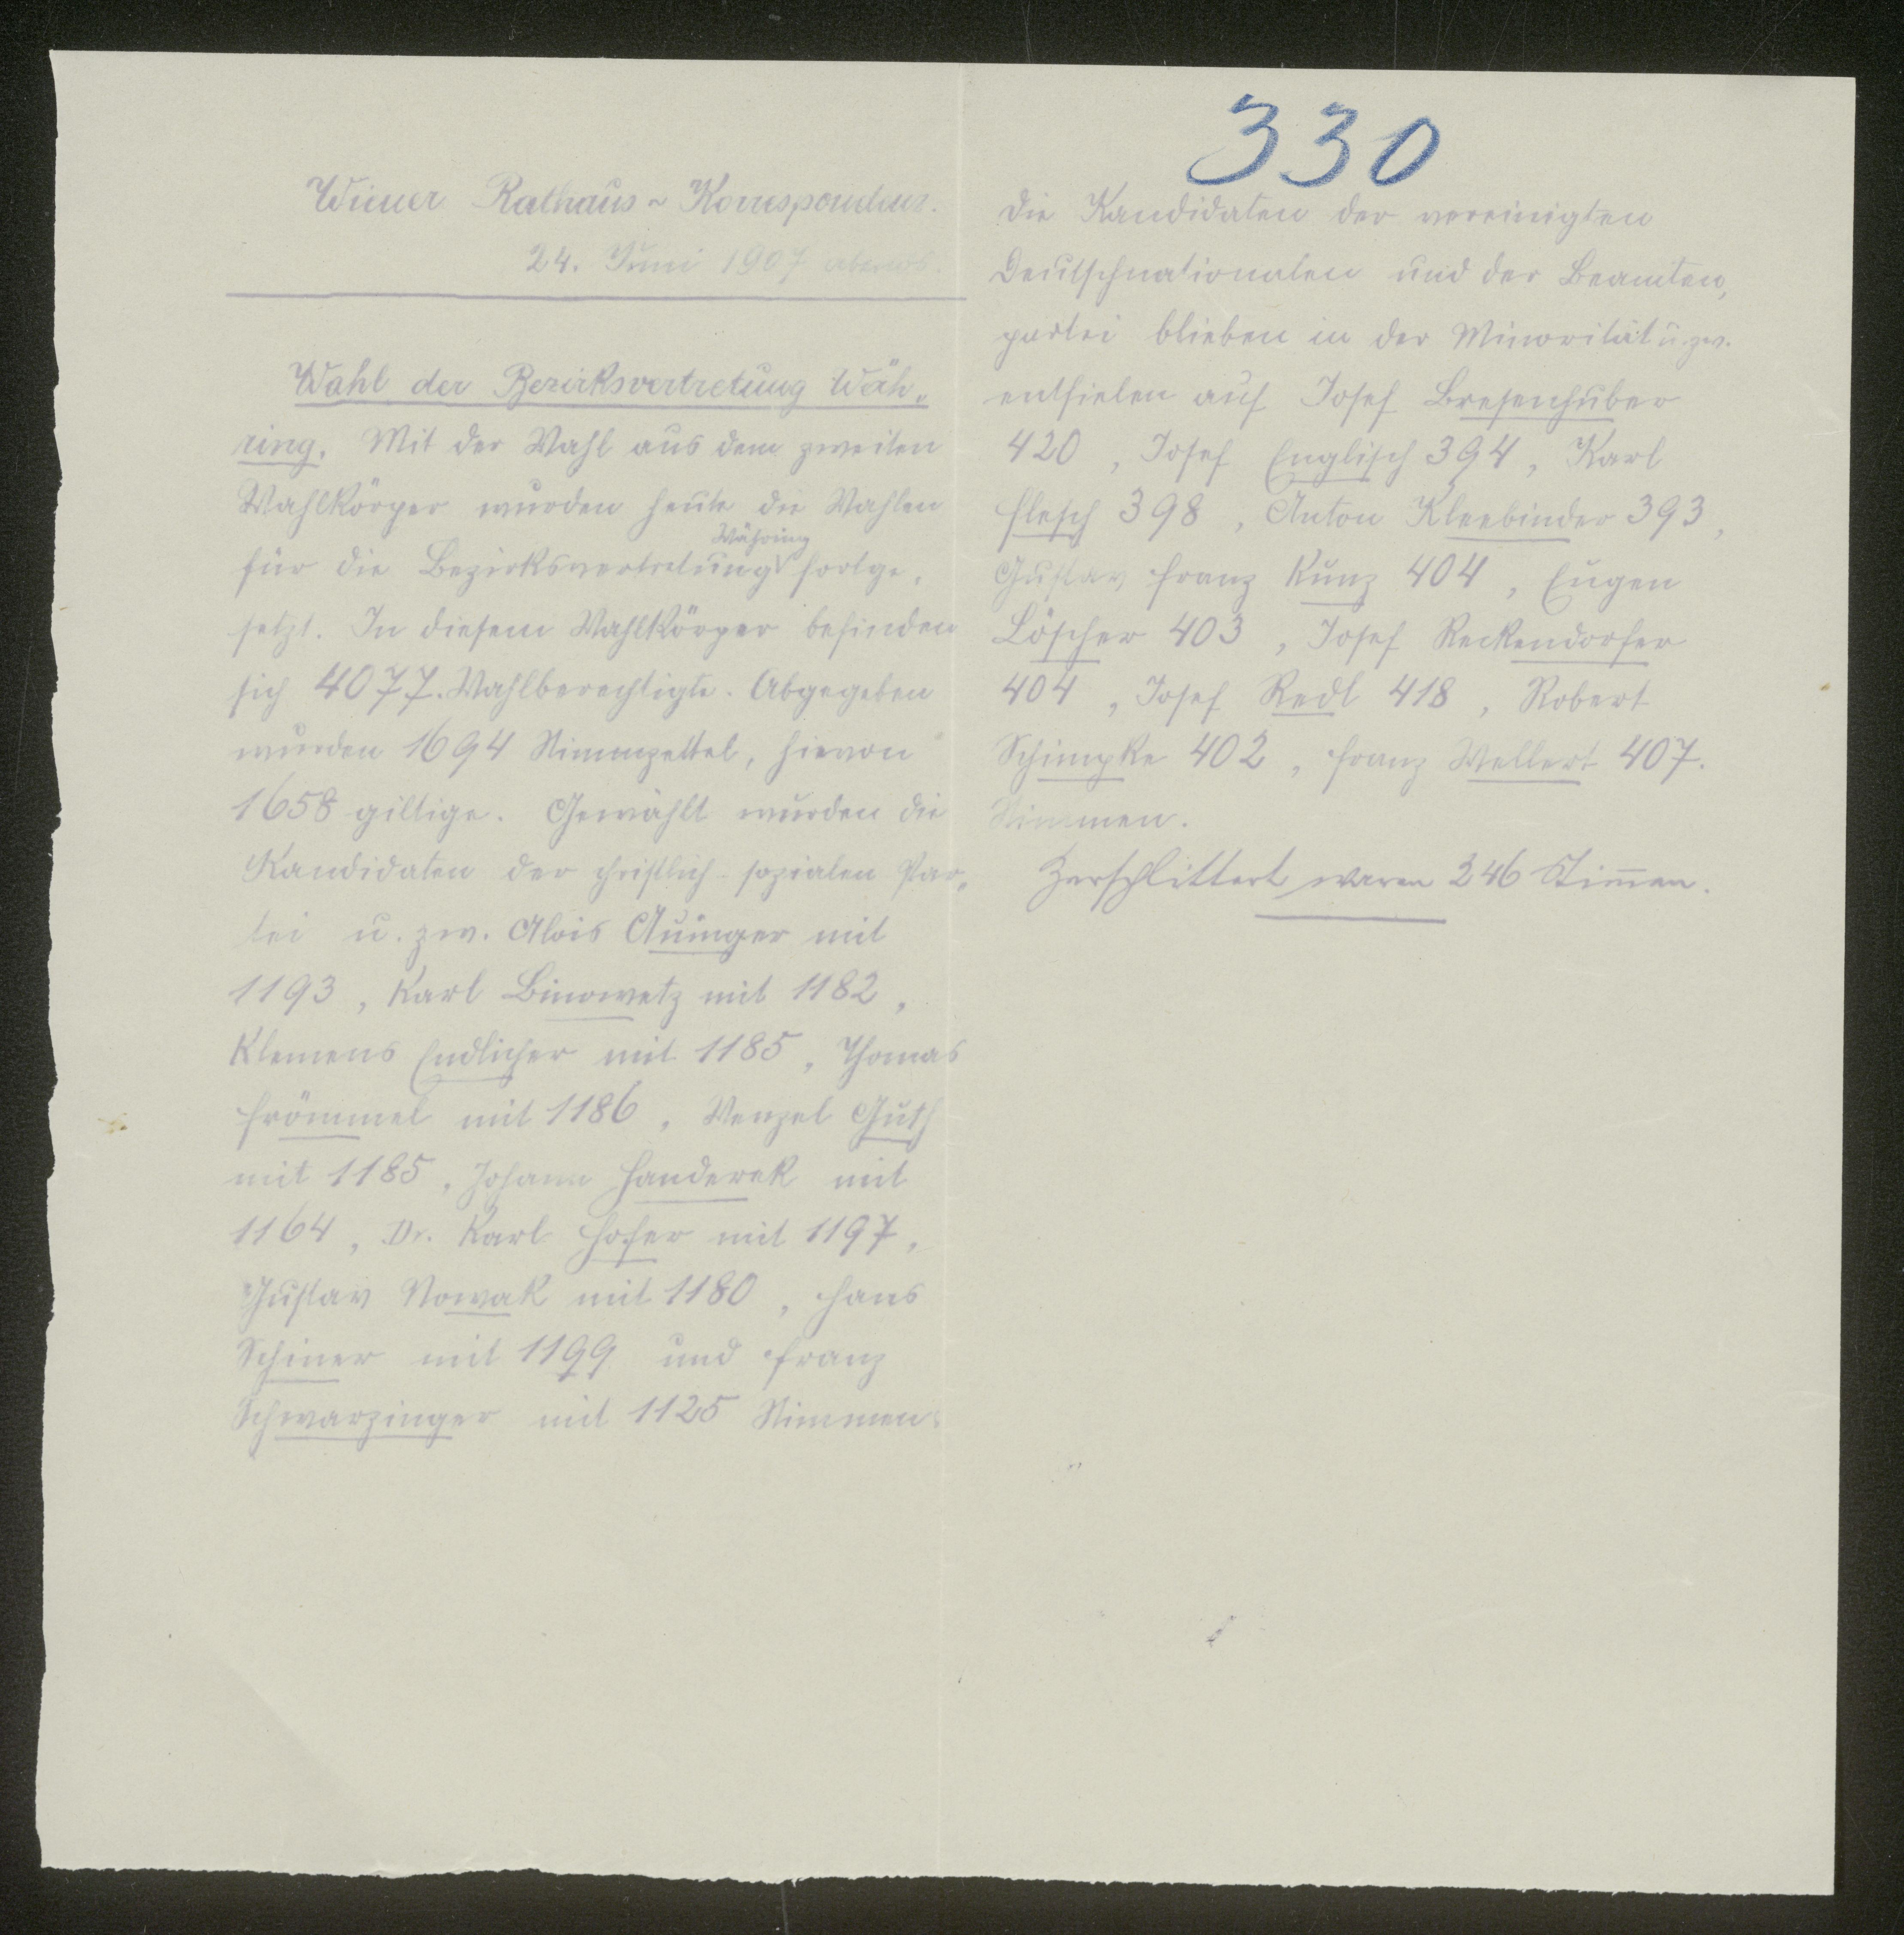 330
Wiener Rathaus-Korrespondenz.
24. Juni 1907 abends.
Wahl der Bezirksvertretung Wäh-
ring. Mit der Wahl aus dem zweiten
Wahlkörper wurden heute die Wahlen
Währing
für die Bezirksvertretung fortge-
setzt. In diesem Wahlkörper befinden
sich 4077. Wahlberechtigte. Abgegeben
wurden 1694 Stimmzettel, hievon
1658 giltige. Gewählt wurden die
Kandidaten der christlich-sozialen Par-
tei u. zw. Alois Auinger mit
1193, Karl Binowetz mit 1182,
Klemens Endlicher mit 1185, Thomas
Frömmel mit 1186, Wenzel Guth
mit 1185, Johann Handerek mit
1164, Dr. Karl Hofer mit 1197,
Gustav Nowak mit 1180, Hans
Schiner mit 1199 und Franz
Schwarzinger mit 1125 Stimmen.
Die Kandidaten der vereinigten
Deutschnationalen und der Beamten-
partei blieben in der Minorität u. zw.
entfielen auf Josef Bresenhuber
420, Josef Englisch 394, Karl
Flesch 398, Anton Kleebinder 393,
Gustav Franz Kunz 404, Eugen
Löscher 403, Josef Reckendorfer
404, Josef Redl 418, Robert
Schimpke 402, Franz Wellert 407.
Stimmen.
Zersplittert waren 246 Stimmen.